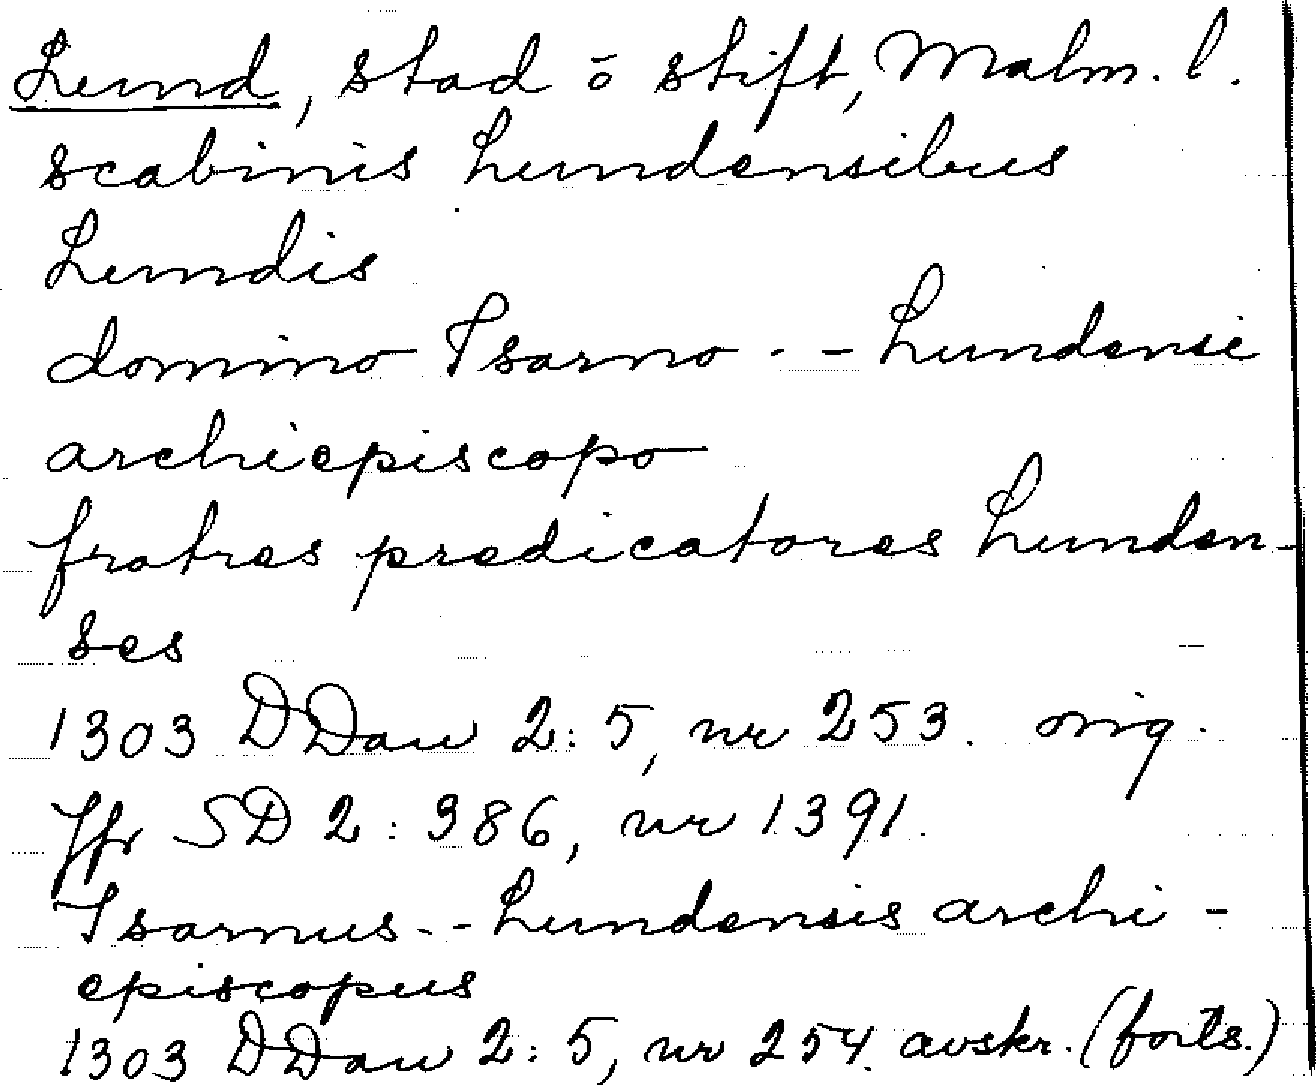 Lund, stad o stift, Malm. l.
scabinis Lundensibus
Lundis
domino Isarno - - Lundensi
archiepiscopo
fratres predicatores Lunden-
ses
1303 DDan 2:5, nr 253. orig.
Jfr SD 2:386, nr 1391.
Isarnus - - Lundensis archi-
episcopus
1303 DDan 2:5, nr 254. avskr. (forts.)